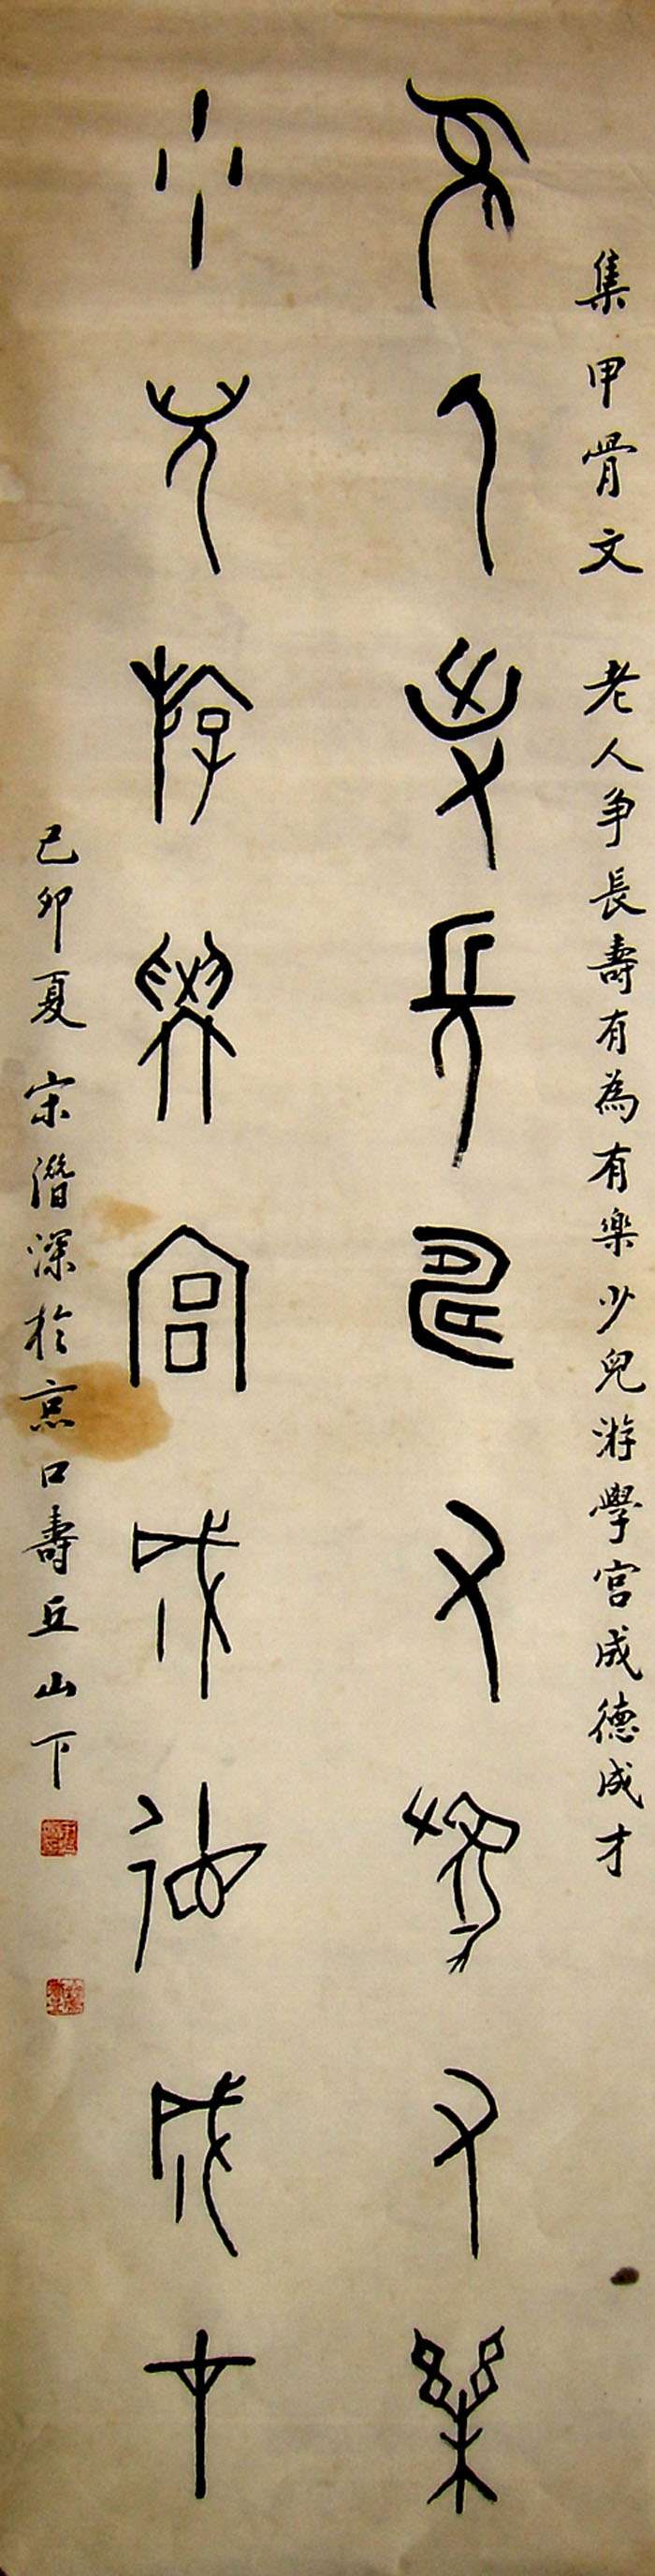 集甲骨文 老人争長壽有為有樂少兒游學宮成德成才
老人争長壽有為有樂
少兒游學宮成德成才
己卯夏 宋潛深於京口壽丘山下